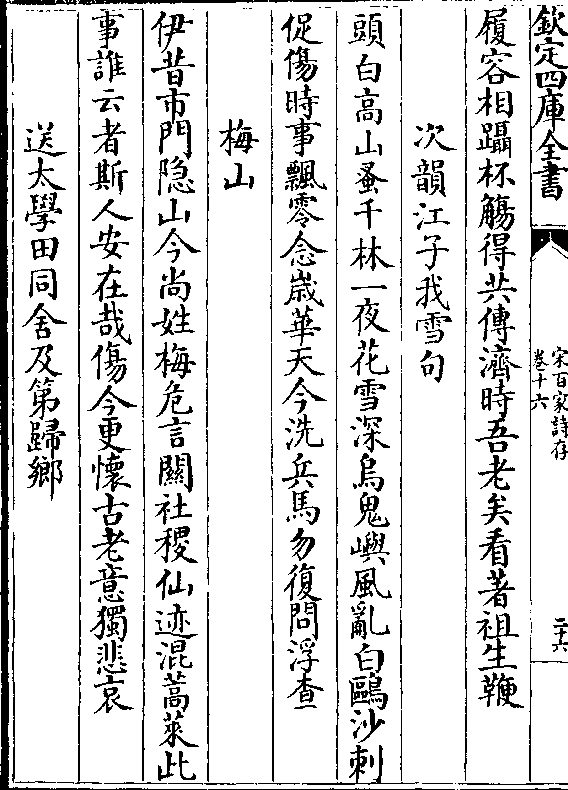 欽定四庫全書
宋百家詩存
卷十六
二十六
履容相躡杯觴得共傳濟時吾老矣看著祖生鞭
次韻江子我雪句
頭白高山蚤千林一夜花雪深烏鬼嶼風亂白鷗沙刺
促傷時事飄零念歳華天今洗兵馬勿復問浮查
梅山
伊昔市門隐山今尚姓梅危言關社稷仙迹混蒿萊此
事誰云者斯人安在哉傷今更懷古老意獨悲哀
送太學田同舍及第歸鄉